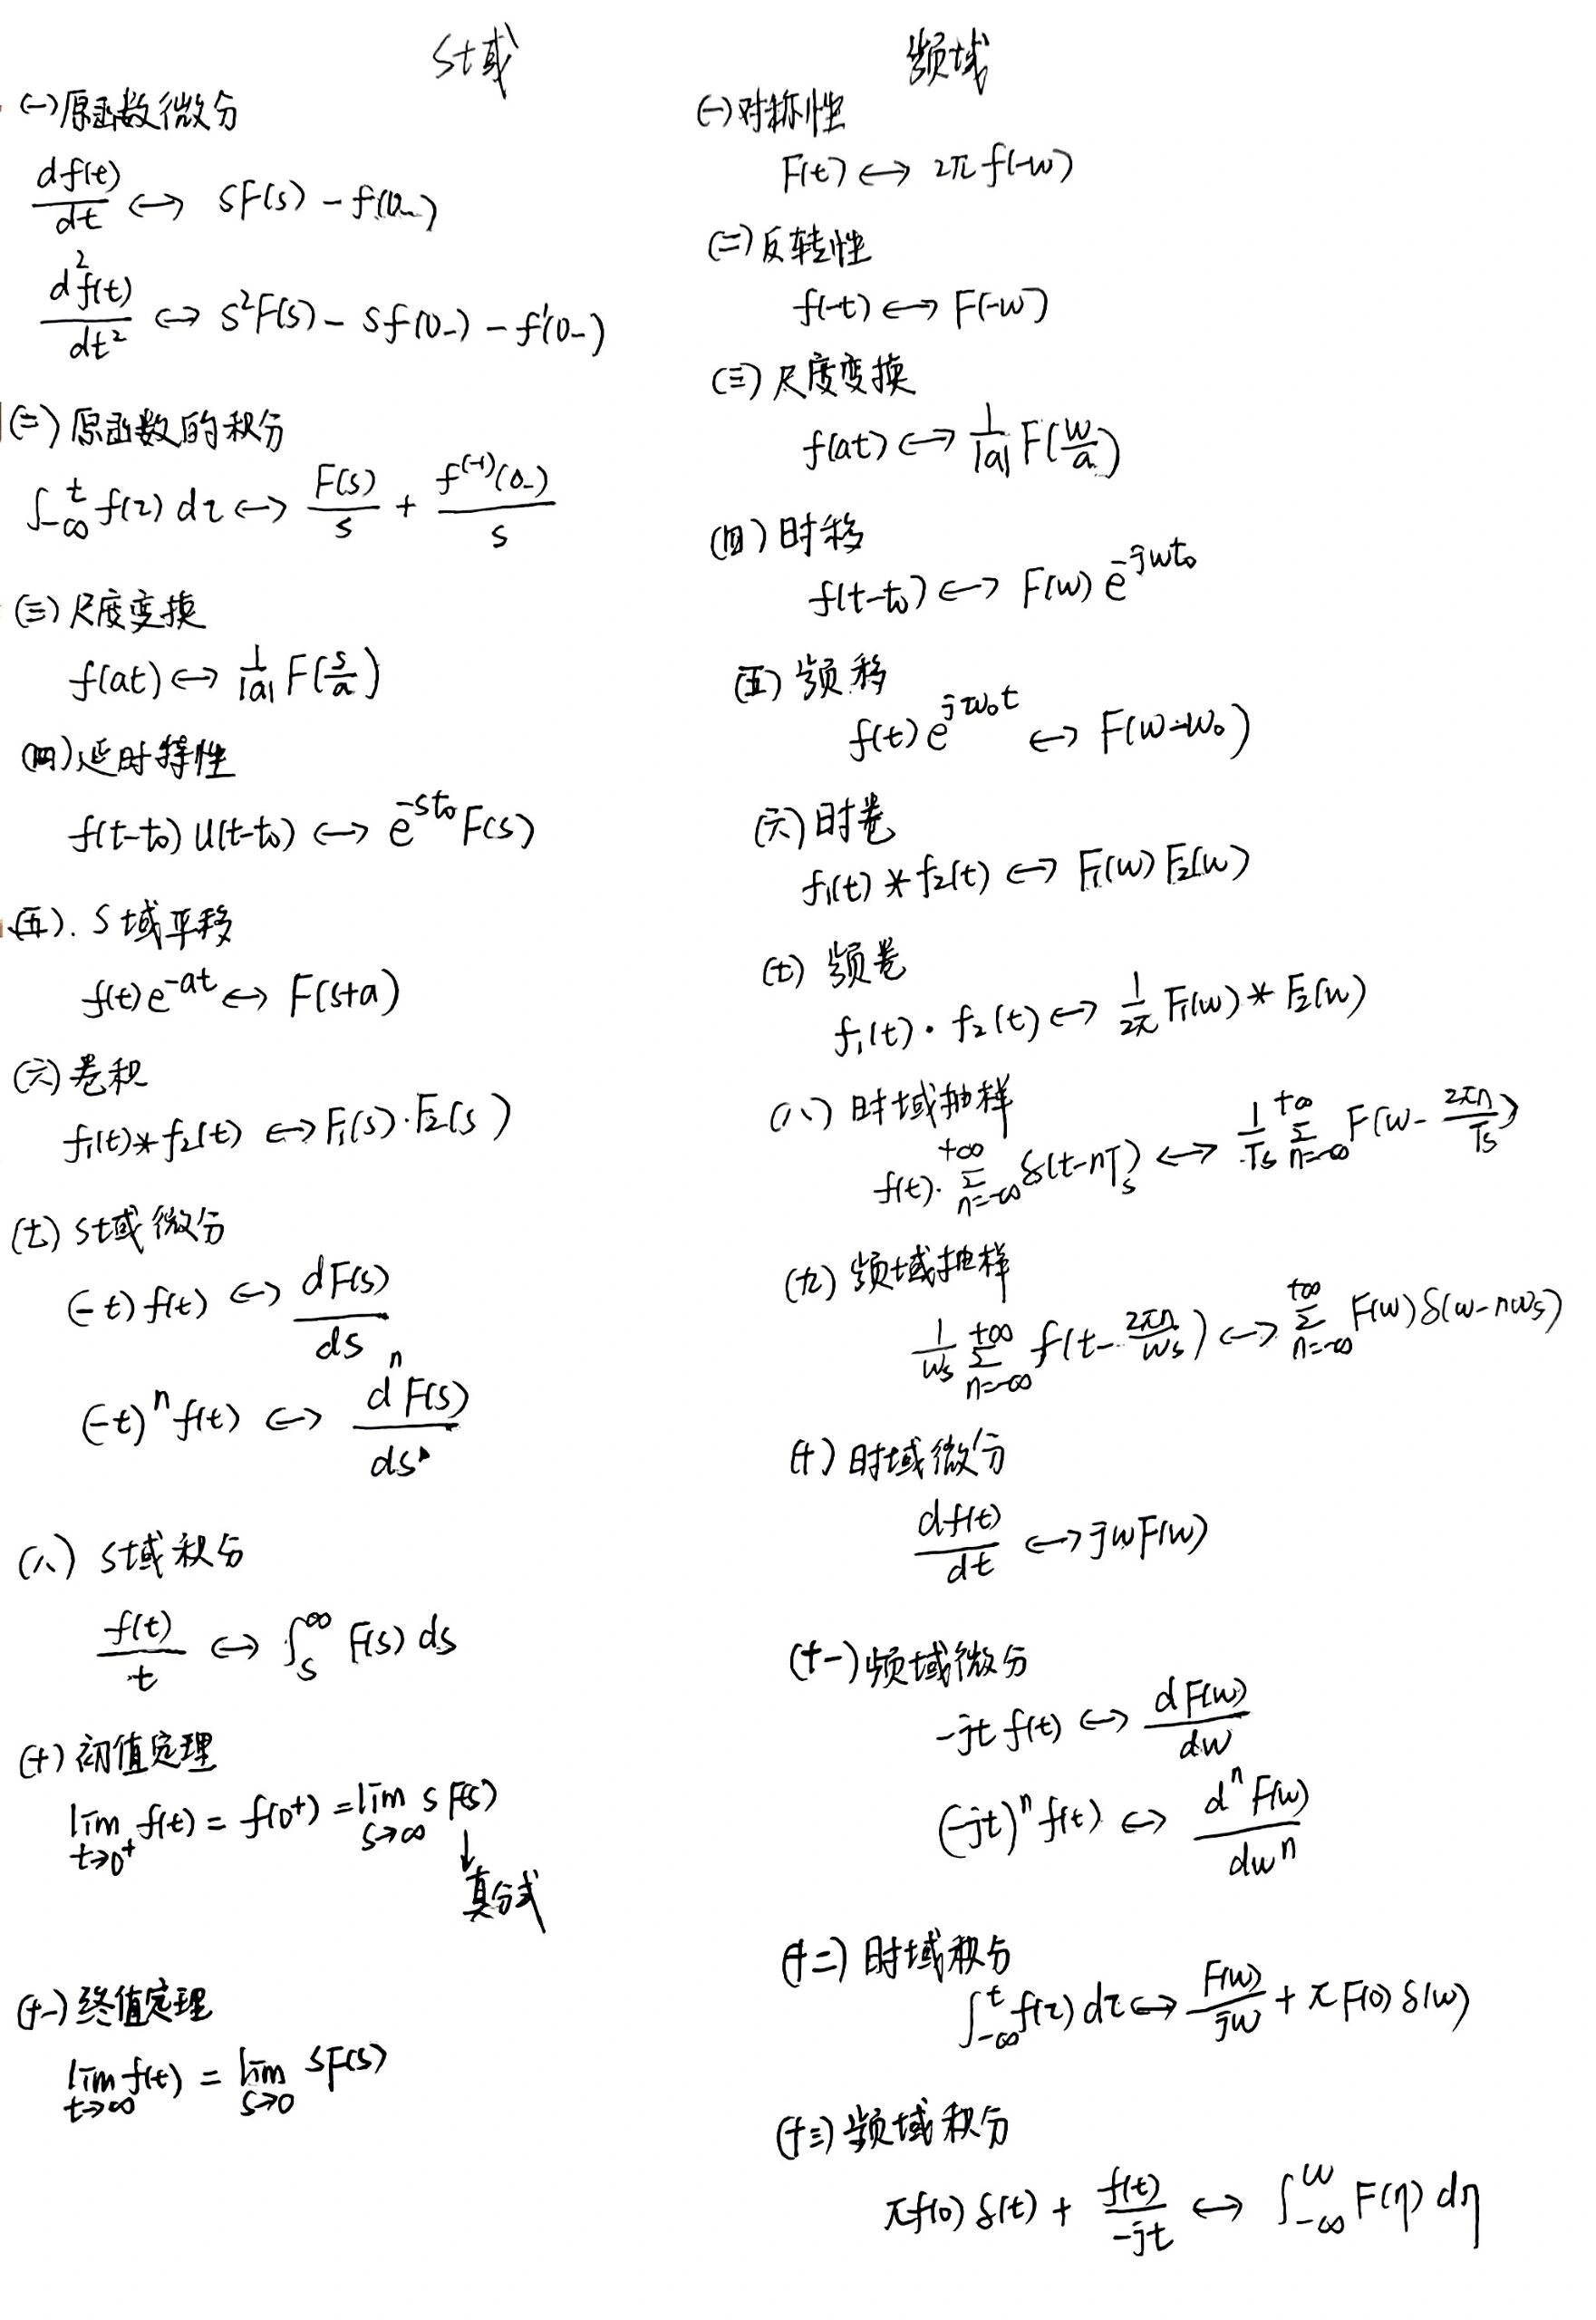 S域
(一)原函数微分
df(t)/dt ↔ SF(s) - f(0_-)
d²f(t)/dt² ↔ S²F(s) - Sf(0_-) - f'(0_-)
(二)原函数的积分
∫_{-∞}^{t} f(τ) dτ ↔ F(s)/s + f^{(-1)}(0_-)/s
(三)尺度变换
f(at) ↔ 1/|a| F(s/a)
(四)延时特性
f(t-t₀) u(t-t₀) ↔ e^{-st₀} F(s)
(五). S域平移
f(t)e^{-at} ↔ F(s+a)
(六)卷积
f₁(t)*f₂(t) ↔ F₁(s)·F₂(s)
(七) S域微分
(-t) f(t) ↔ dF(s)/ds
(-t)^n f(t) ↔ d^n F(s)/ds^n
(八) S域积分
f(t)/t ↔ ∫_s^∞ F(s) ds
(十) 初值定理
lim_{t→0⁺} f(t) = f(0⁺) = lim_{s→∞} s F(s)
↓
真分式
(十一)终值定理
lim_{t→∞} f(t) = lim_{s→0} sF(s)
频域
(一)对称性
F(t) ↔ 2π f(-w)
(二)反转性
f(-t) ↔ F(-w)
(三)尺度变换
f(at) ↔ 1/|a| F(w/a)
(四)时移
f(t-t₀) ↔ F(w) e^{-jwt₀}
(五)频移
f(t) e^{jw₀t} ↔ F(w-w₀)
(六)时卷
f₁(t) * f₂(t) ↔ F₁(w) F₂(w)
(七) 频卷
f₁(t) · f₂(t) ↔ 1/2π F₁(w) * F₂(w)
(八) 时域抽样
f(t)· Σ_{n=-∞}^{+∞} δ(t-nT_s) ↔ 1/T_s Σ_{n=-∞}^{+∞} F(w - 2πn/T_s)
(九) 频域抽样
1/w_s Σ_{n=-∞}^{+∞} f(t - 2πn/w_s) ↔ Σ_{n=-∞}^{+∞} F(w) δ(w-nw_s)
(十) 时域微分
df(t)/dt ↔ jwF(w)
(十一)频域微分
-jt f(t) ↔ dF(w)/dw
(-jt)^n f(t) ↔ d^n F(w)/dw^n
(十二) 时域积分
∫_{-∞}^{t} f(τ) dτ ↔ F(w)/jw + πF(0) δ(w)
(十三)频域积分
πf(0) δ(t) + f(t)/-jt ↔ ∫_{-∞}^{w} F(η) dη